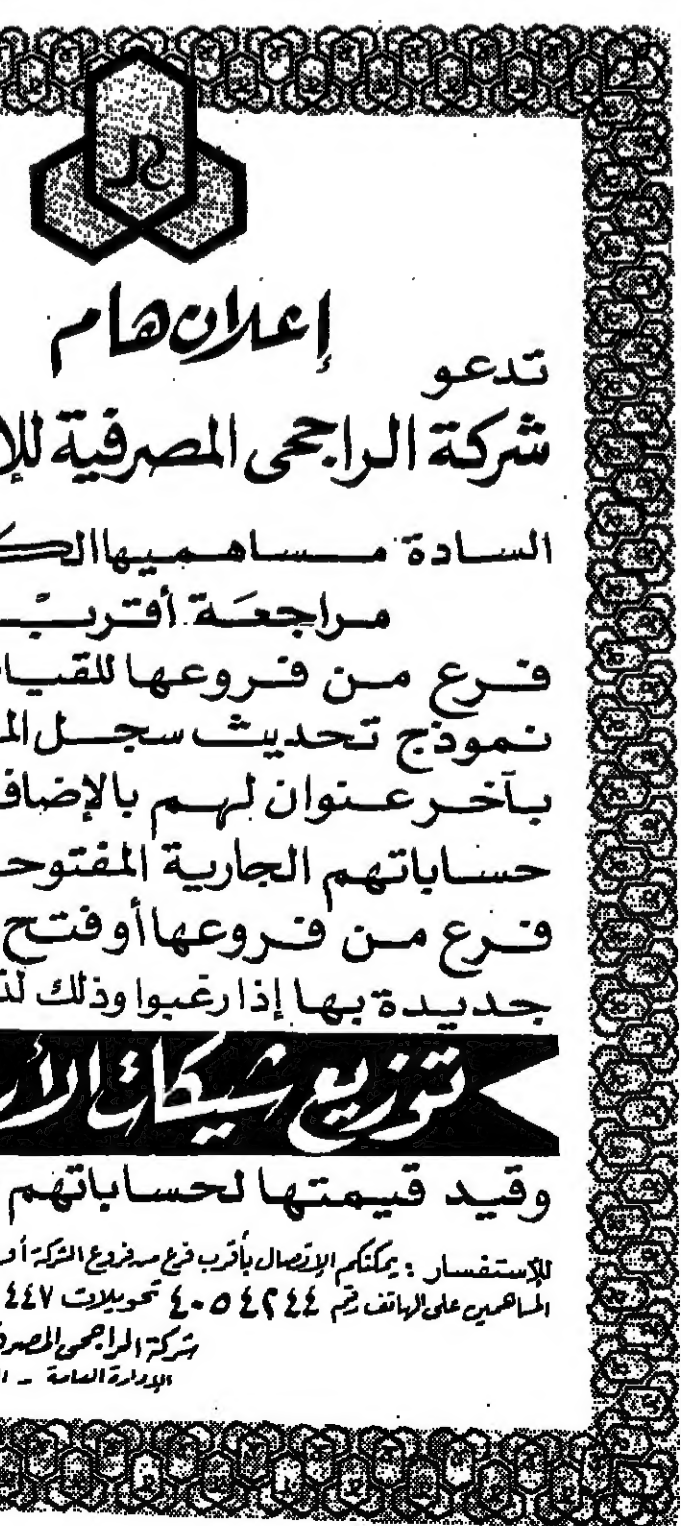 إعلان هام
تدعو
شركة الراجحى المصرفية للإ
السادة مساهميها الك
مراجعة أقرب
فرع من فروعها للقيا
نموذج تحديث سجل الم
بآخر عنوان لهم بالإضاف
حساباتهم الجارية المفتوح
فرع من فروعها أو فتح
جديدة بها إذا رغبوا وذلك لذ
توزيع شيكات الأر
وقيد قيمتها لحساباتهم
للإستفسار : يمكنكم الإتصال بأقرب فرع من فروع الشركة أو
المساهمين على الهاتف رقم ٤٠٥٤٢٤٤ تحويلات ٤٤٧
شركة الراجحى المصرف
الإدارة العامة - ال